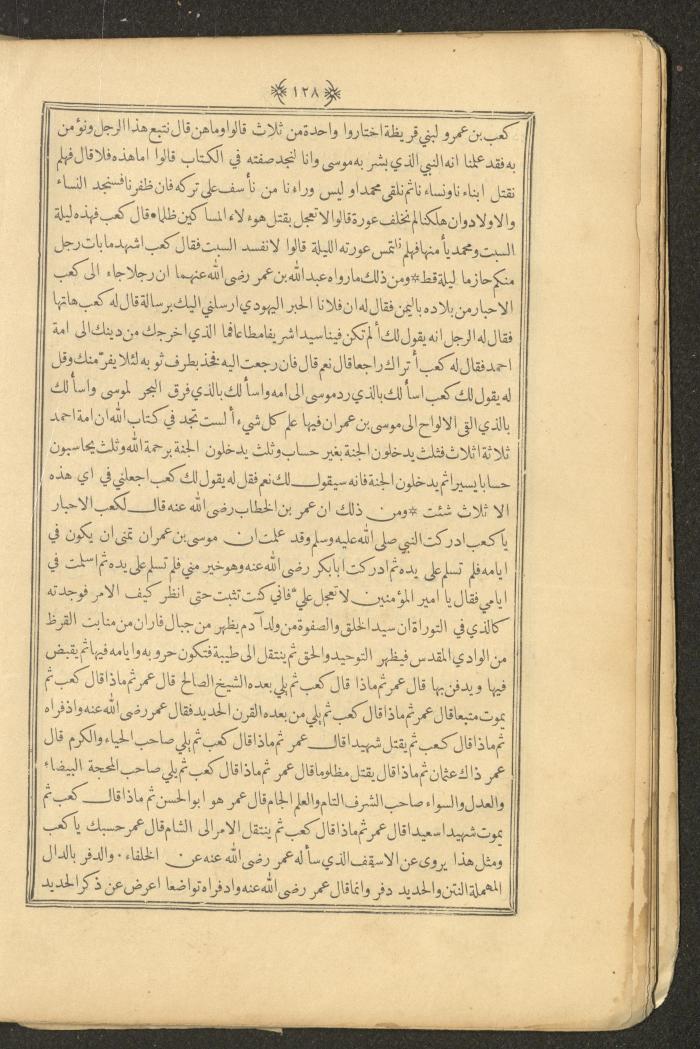 ١٢٨
كعب بن عمرو لبني قريظة اختاروا واحدة من ثلاث قالوا وما هن قال نتبع هذا الرجل ونؤمن
به فقد علمنا انه النبي الذي بشر به موسى وانا لنجد صفته في الكتاب قالوا اما هذه فلا قال فهلم
نقتل ابناءنا ونساءنا ثم نلقى محمدا وليس وراءنا من نأسف على تركه فان ظفرنا فسنجد النساء
والاولاد وان هلكنا لم نخلف عورة قالوا لا تعجل بقتل هوءلاء المساكين ظلما • قال كعب فهذه ليلة
السبت ومحمد يأمنها فهلم نلتمس عورته الليلة قالوا لا نفسد السبت فقال كعب اشهد ما بات رجل
منكم حازما ليلة قط * ومن ذلك ما رواه عبد الله بن عمر رضى الله عنهما ان رجلا جاء الى كعب
الاحبار من بلاده باليمن فقال له ان فلانا الحبر اليهودي ارسلني اليك برسالة قال له كعب هاتها
فقال له الرجل انه يقول لك ألم تكن فينا سيدا شريفا مطاعا فما الذي اخرجك من دينك الى امة
احمد فقال له كعب أتراك راجعا قال نعم قال فان رجعت اليه فخذ بطرف ثوبه لئلا يفر منك وقل
له يقول لك كعب اسألك بالذي رد موسى الى امه واسألك بالذي فرق البحر لموسى واسألك
بالذي القى الالواح الى موسى بن عمران فيها علم كل شيء ألست تجد في كتاب الله ان امة احمد
ثلاثة اثلاث فثلث يدخلون الجنة بغير حساب وثلث يدخلون الجنة برحمة الله وثلث يحاسبون
حسابا يسيرا ثم يدخلون الجنة فانه سيقول لك نعم فقل له يقول لك كعب اجعلني في اي هذه
الاثلاث شئت * ومن ذلك ان عمر بن الخطاب رضى الله عنه قال لكعب الاحبار
يا كعب ادركت النبي صلى الله عليه وسلم وقد علمت ان موسى بن عمران تمنى ان يكون في
ايامه فلم تسلم على يده ثم ادركت ابا بكر رضى الله عنه وهو خير مني فلم تسلم على يده ثم اسلمت في
ايامي فقال يا امير المؤمنين لا تعجل علي فاني كنت تثبت حتى انظر كيف الامر فوجدته
كالذي في التوراة ان سيد الخلق والصفوة من ولد آدم يظهر من جبال فاران من منابت القرظ
من الوادي المقدس فيظهر التوحيد والحق ثم ينتقل الى طيبة فتكون حروبه وايامه فيها ثم يقبض
فيها ويدفن بها قال عمر ثم ماذا قال كعب ثم يلي بعده الشيخ الصالح قال عمر ثم ماذا قال كعب ثم
يموت متبعا قال عمر ثم ماذا قال كعب ثم يلي من بعده القرن الحديد فقال عمر رضى الله عنه واذفراه
ثم ماذا قال كعب ثم يقتل شهيدا قال عمر ثم ماذا قال كعب ثم يلي صاحب الحياء والكرم قال
عمر ذاك عثمان ثم ماذا قال يقتل مظلوما قال عمر ثم ماذا قال كعب ثم يلي صاحب المحجة البيضاء
والعدل والسواء صاحب الشرف التام والعلم الجام قال عمر هو ابو الحسن ثم ماذا قال كعب ثم
يموت شهيدا سعيدا قال عمر ثم ماذا قال كعب ثم ينتقل الامر الى الشام قال عمر حسبك يا كعب
ومثل هذا يروى عن الاسقف الذي سأله عمر رضى الله عنه عن الخلفاء • والدفر بالدال
المهملة النتن والحديد دفر وانما قال عمر رضى الله عنه وادفراه تواضعا اعرض عن ذكر الحديد